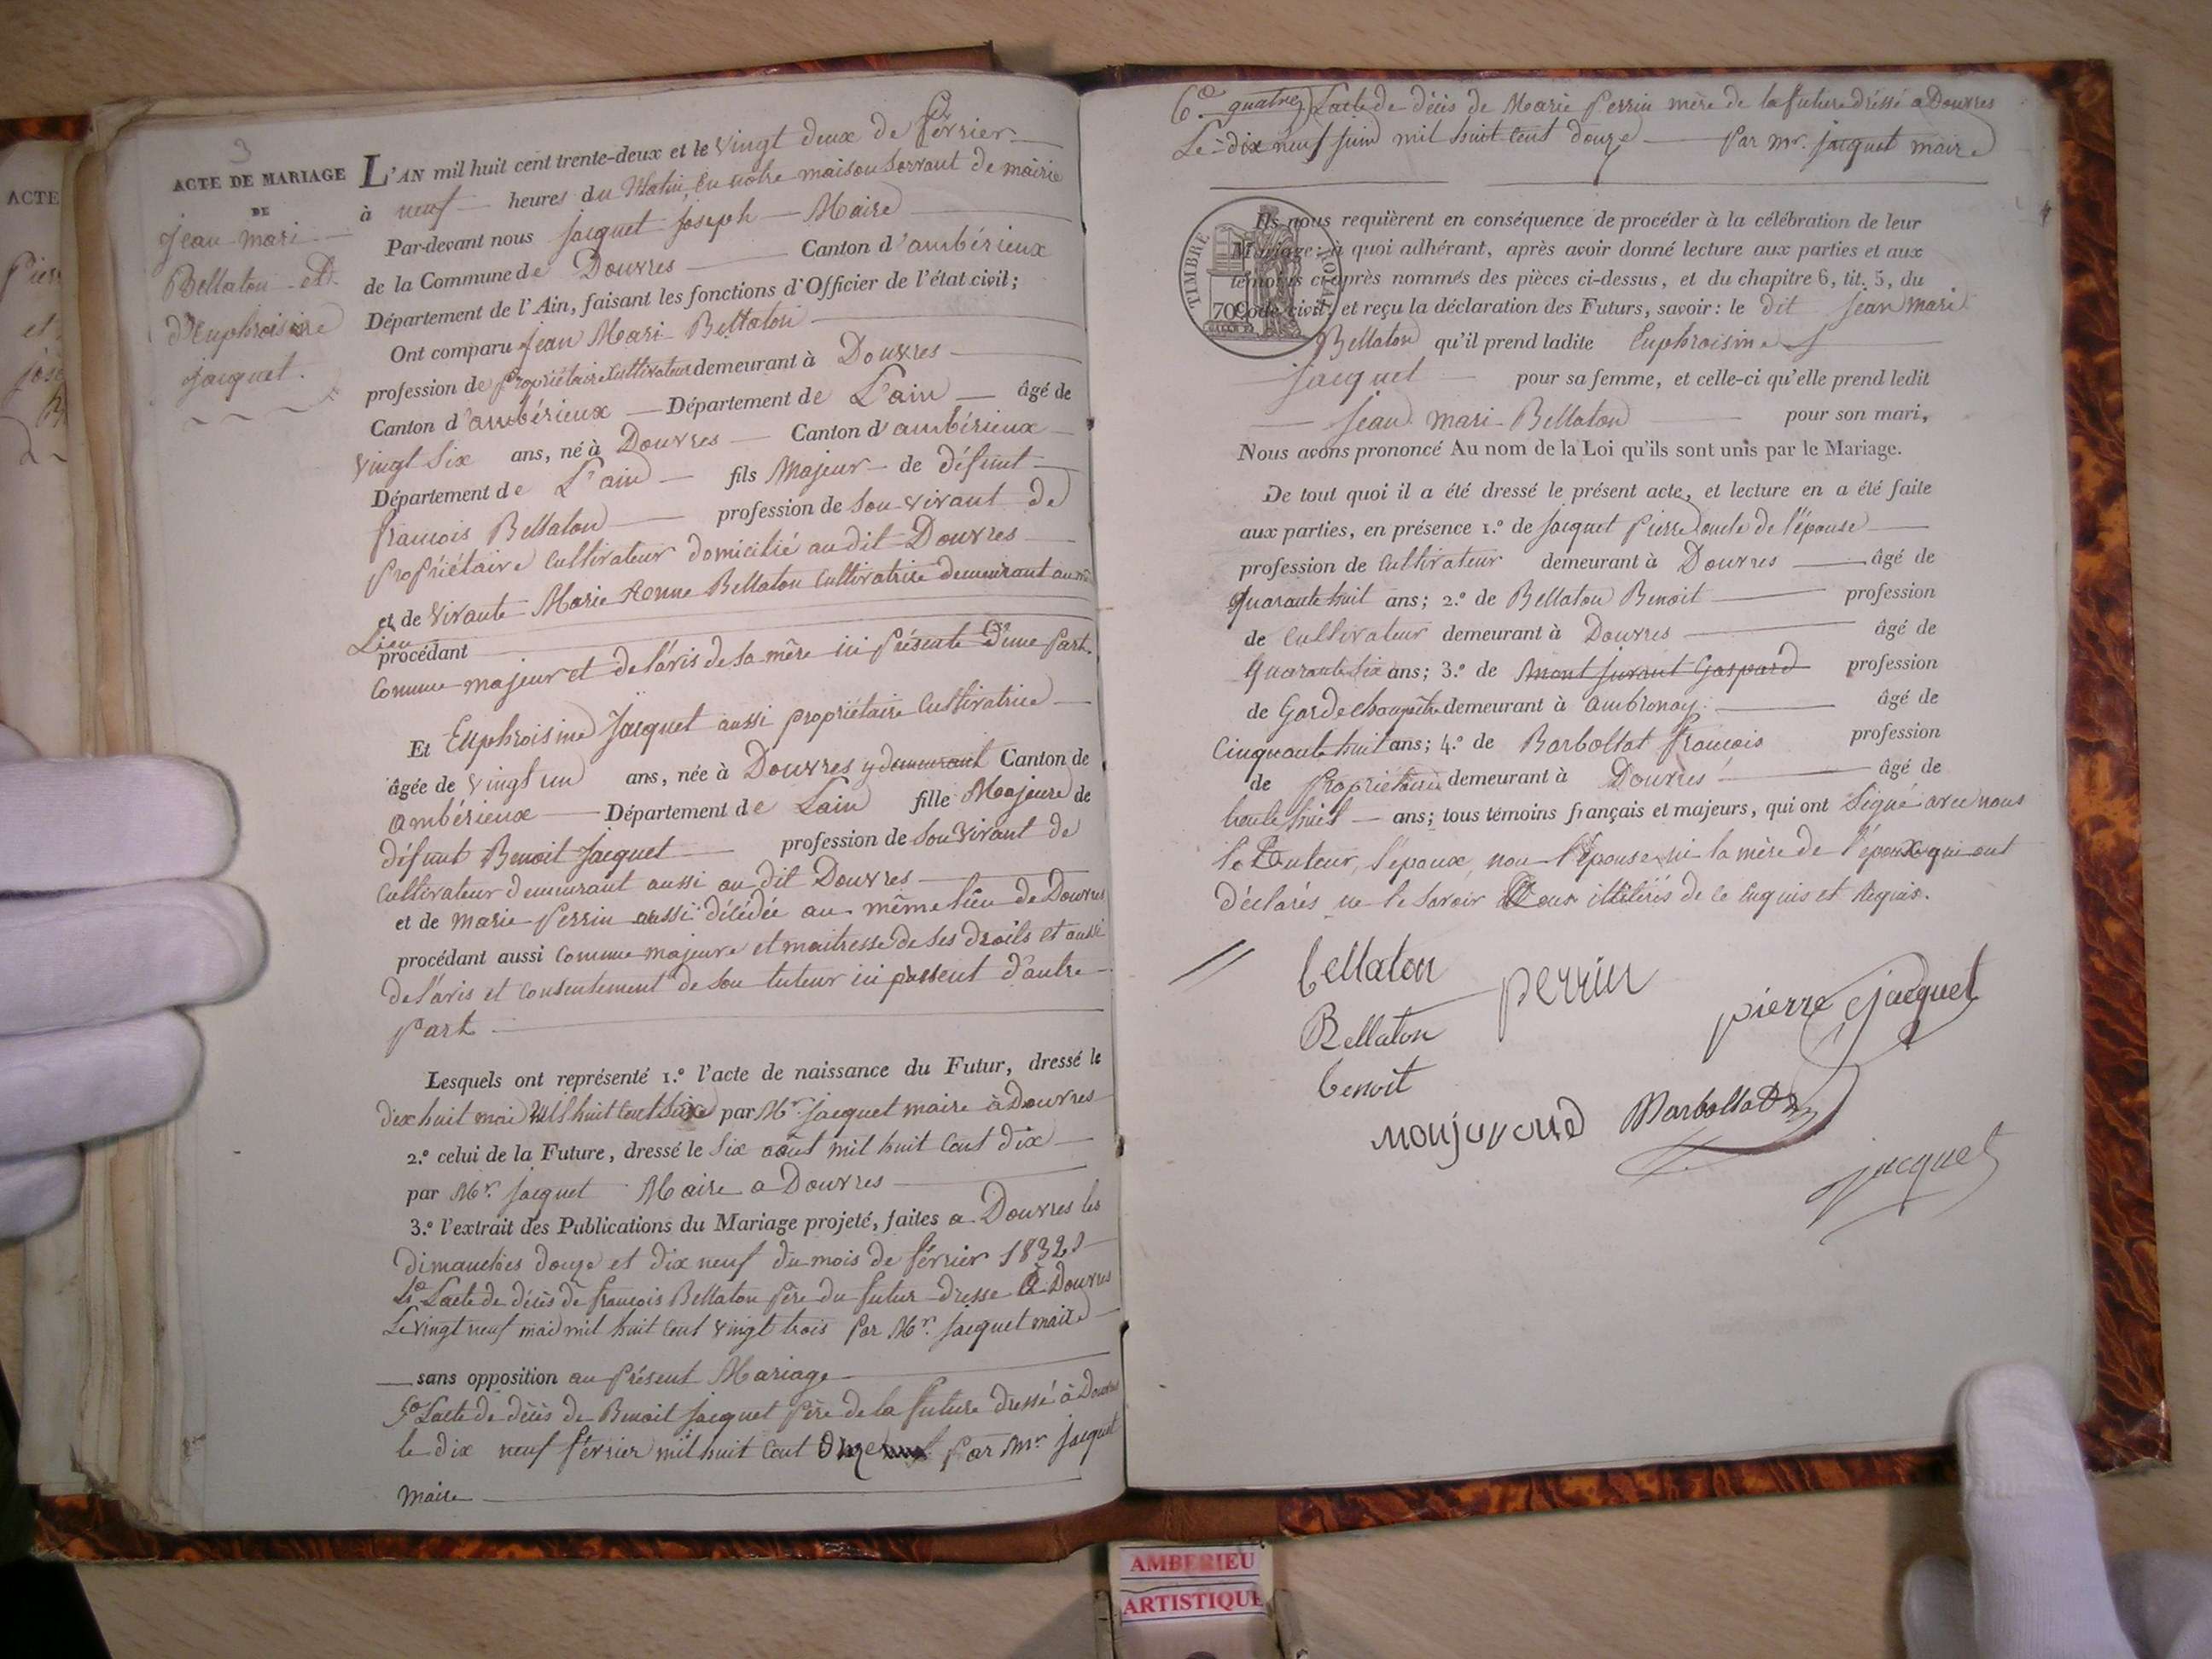 3
ACTE DE MARIAGE
DE
Jean Mari
Bellaton et
d'Euphroisine
Jacquet.
ACTE
L'AN mil huit cent trente-deux et le vingt deux de février
à neuf heures du Matin, en notre maison servant de mairie
Par-devant nous Jacquet Joseph Maire
de la Commune de Douvres Canton d'ambérieux
Département de l'Ain, faisant les fonctions d'Officier de l'état civil;
Ont comparu Jean Mari Bellaton
profession de propriétaire Cultivateur demeurant à Douvres
Canton d'ambérieux Département de L'ain âgé de
vingt six ans, né à Douvres Canton d'ambérieux
Département de L'ain fils Majeur de défunt
françois Bellaton profession de son vivant de
propriétaire Cultivateur domicilié audit Douvres
et de vivante Marie Anne Bellaton Cultivatrice demeurant au
Lieu
procédant
Comme majeur et de l'avis de sa mère ici présente D'une part.
Et Euphroisine Jacquet aussi propriétaire Cultivatrice
âgée de vingt un ans, née à Douvres y demeurant Canton de
ambérieux Département de Lain fille Majeure de
défunt Benoit Jacquet profession de son vivant de
Cultivateur demeurant aussi au dit Douvres
et de Marie Perrin aussi décédée au même lieu de Douvres
procédant aussi Comme majeure et maitresse de ses droits et aussi
de l'avis et consentement de son tuteur ici présent d'autre
part
Lesquels ont représenté 1.º l'acte de naissance du Futur, dressé le
dix huit mai mil huit Cent Six par Mr. Jacquet maire à Douvres
2.º celui de la Future, dressé le Six août mil huit Cent dix
par Mr. Jacquet Maire a Douvres
3.º l'extrait des Publications du Mariage projeté, faites a Douvres les
Dimanches douze et dix neuf du mois de février 1832
4º Lacte de décès de françois Bellaton père du futur dresse à Douvres
Le vingt neuf mai mil huit Cent vingt trois par Mr. Jacquet maire
sans opposition au présent Mariage
5º Lacte de décès de Benoit Jacquet père de la future dressé à Douvres
le dix neuf février mil huit Cent Onze par Mr Jacquet
Maire
6º Lacte de décès de Marie Perrin mère de la future dréssé a Douvres
Le dix neuf juin mil huit Cent douze Par Mr. Jacquet maire
TIMBRE ROYAL
70
Ils nous requièrent en conséquence de procéder à la célébration de leur
Mariage; à quoi adhérant, après avoir donné lecture aux parties et aux
témoins ci-après nommés des pièces ci-dessus, et du chapitre 6, tit. 5, du
Code civil; et reçu la déclaration des Futurs, savoir: le dit Jean Mari
Bellaton qu'il prend ladite Euphroisine
Jacquet pour sa femme, et celle-ci qu'elle prend ledit
Jean Mari Bellaton pour son mari,
Nous avons prononcé Au nom de la Loi qu'ils sont unis par le Mariage.
De tout quoi il a été dressé le présent acte, et lecture en a été faite
aux parties, en présence 1.º de Jacquet Pierre oncle de l'épouse
profession de Cultivateur demeurant à Douvres âgé de
quarante huit ans; 2.º de Bellaton Benoit profession
de Cultivateur demeurant à Douvres âgé de
quarante six ans; 3.º de Mont juvant Gaspard profession
de Garde Champêtre demeurant à ambronay âgé de
Cinquante huit ans; 4.º de Barbollat françois profession
de Propriétaire demeurant à Douvres âgé de
trente huit ans; tous témoins français et majeurs, qui ont Signé avec nous
le Tuteur, l'époux, non l'épouse ni la mère de l'époux qui ont
déclarés ne le savoir Pour illitérés de ce Enquis et Requis.
bellaton
perrin
pierre Jacquet
Bellaton
benoit
monjuvand
Barbollat
Jacquet
AMBERIEU
ARTISTIQUE